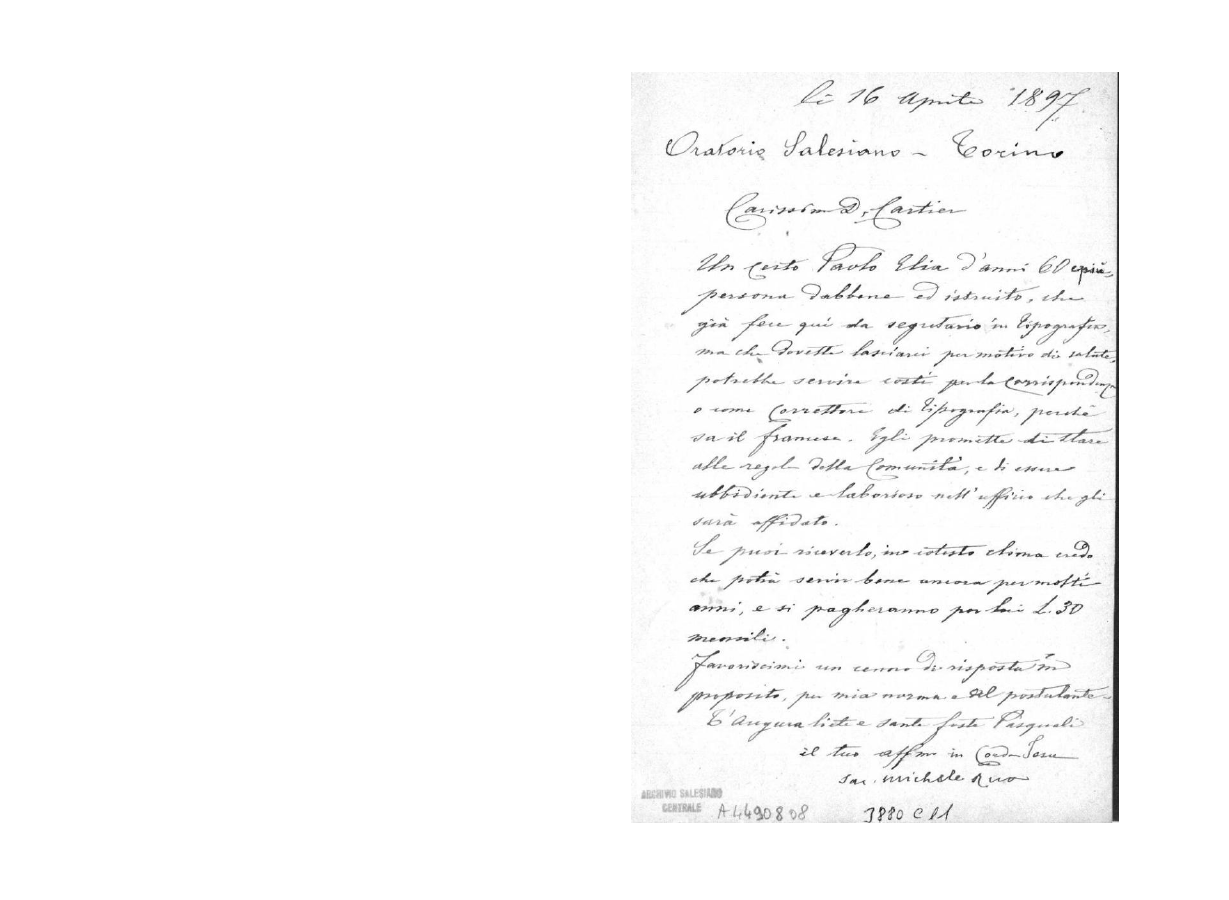 li 16 Aprile 1897
Oratorio Salesiano - Torino
Carissimo D. Cartier
Un certo Paolo Elia d'anni 60 e più,
persona dabbene ed istruito, che
già fece qui da segretario in tipografia,
ma che dovette lasciarci per motivo di salute,
potrebbe servire costì per la corrispondenza
o come Correttore di tipografia, perchè
sa il francese. Egli promette di stare
alle regole della Comunità, e di essere
ubbidiente e laborioso nell'ufficio che gli
sarà affidato.
Se puoi riceverlo, in cotesto clima credo
che potrà servir bene ancora per molti
anni, e si pagheranno per lui L. 30
mensili.
Favoriscimi un cenno di risposta in
proposito, per mia norma e del postulante.
T'auguro liete e sante feste Pasquali
il tuo affmo in Corde Jesu
Sac. Michele Rua
ARCHIVIO SALESIANO
CENTRALE
A4490808
3880 C 11